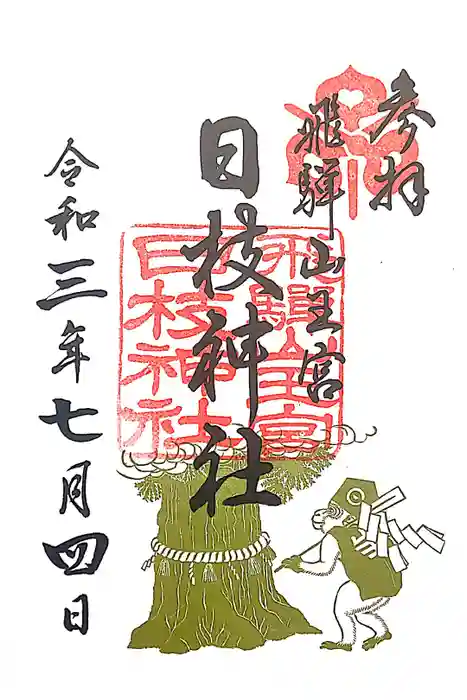 参拝
飛騨山王宮
日枝神社
飛騨山王宮
日枝神社
令和三年七月四日